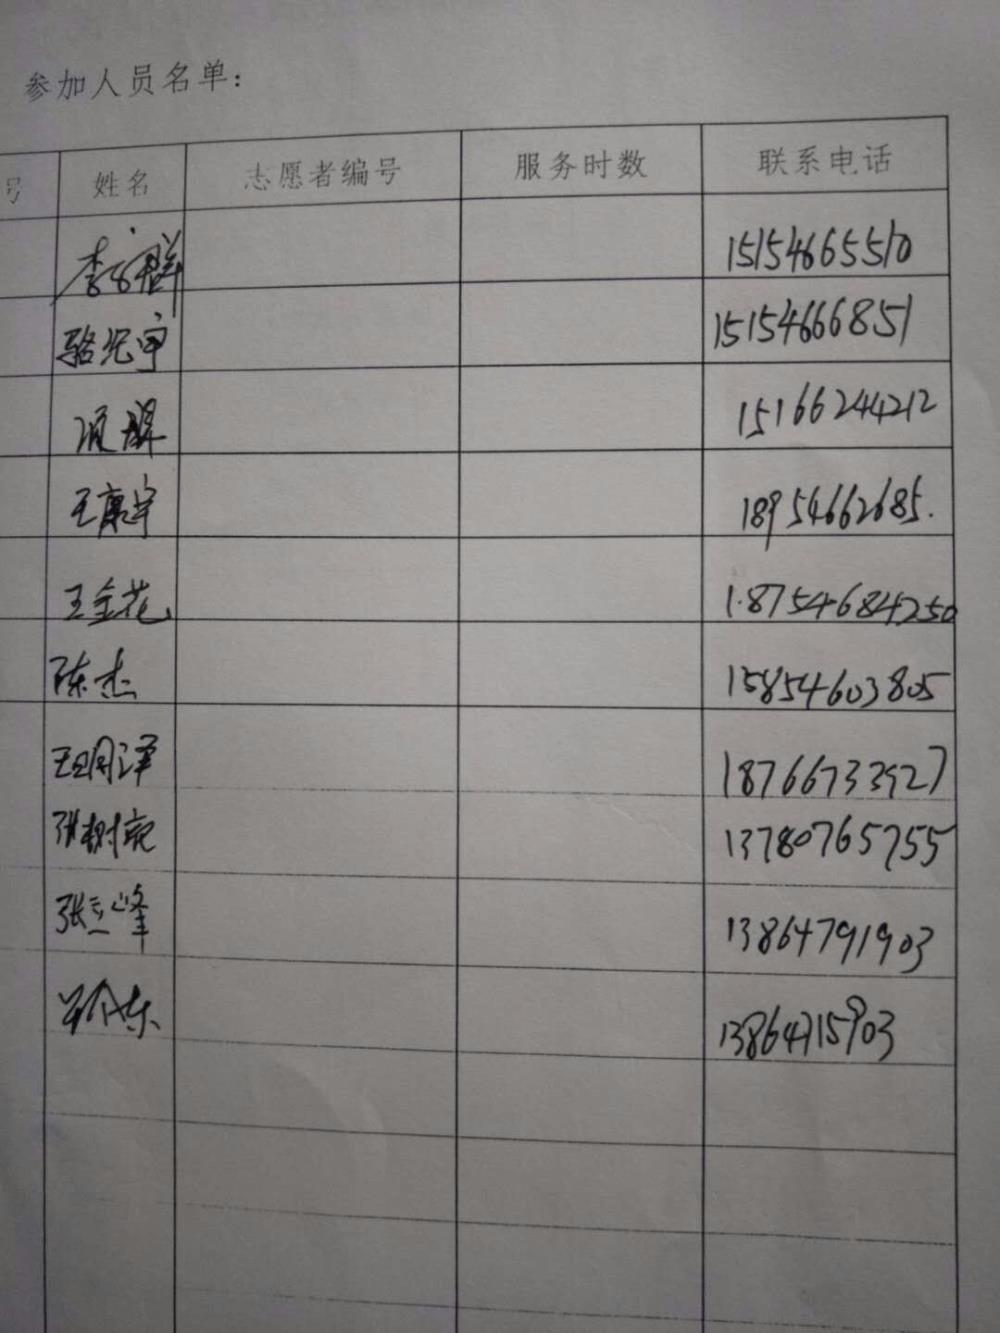 参加人员名单:
号 姓名 志愿者编号 服务时数 联系电话
李 群 15154665510
骆 宁 15154666851
项 15166244212
王康宇 18954662685.
王金花 18754684250
陈杰 15854603805
王明泽 18766733927
张树 13780765755
张立峰 13864791903
东 13864715903